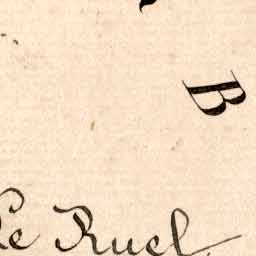 B
Ruel